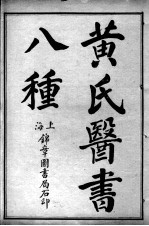 黃氏醫書
八種
上海
錦章圖書局石印